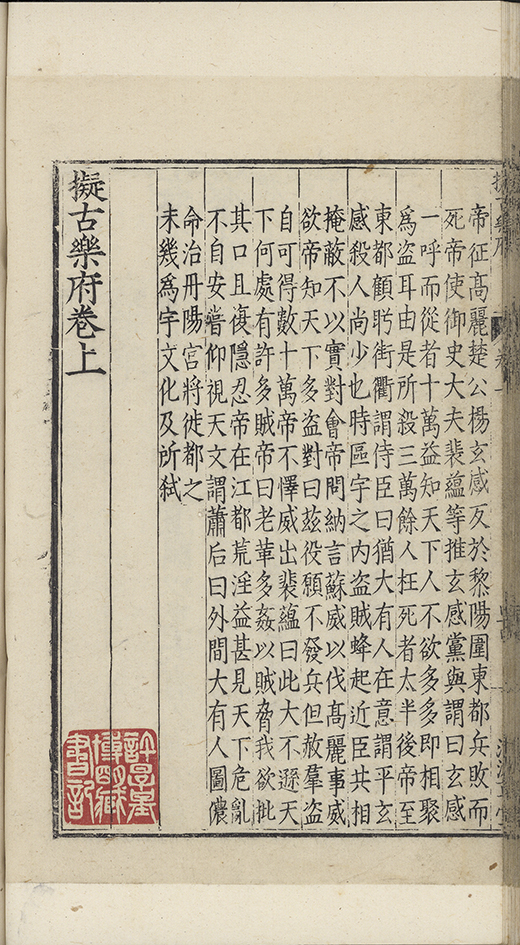 帝征高麗楚公楊玄感反於黎陽圍東都兵敗而
死帝使御史大夫裴蘊等推玄感黨與謂曰玄感
一呼而從者十萬益知天下人不欲多多即相聚
為盗耳由是所殺三萬餘人枉死者太半後帝至
東都顧眄街衢謂侍臣曰猶大有人在意謂平玄
感殺人尚少也時區宇之内盗賊蜂起近臣共相
掩蔽不以實對會帝問納言蘇威以伐高麗事威
欲帝知天下多盗對曰茲役願不發兵但赦羣盗
自可得數十萬帝不懌威出裴蘊曰此大不遜天
下何處有許多賊帝曰老革多姦以賊脅我欲批
其口且復隱忍帝在江都荒淫益甚見天下危亂
不自安嘗仰視天文謂蕭后曰外間大有人圖儂
命治丹陽宮將徙都之
未幾為宇文化及所弒
擬古樂府卷上
擬古樂府
卷